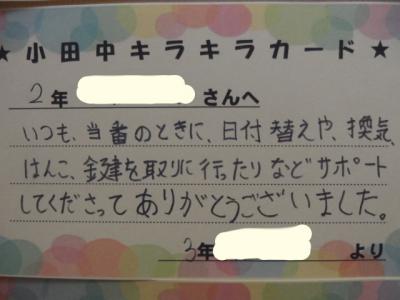 ★小田中キラキラカード★
2年 さんへ
いつも、当番のときに、日付替えや、換気、
はんこ、鍵を取りに行ったりなどサポート
してくださってありがとうございました。
3年 より